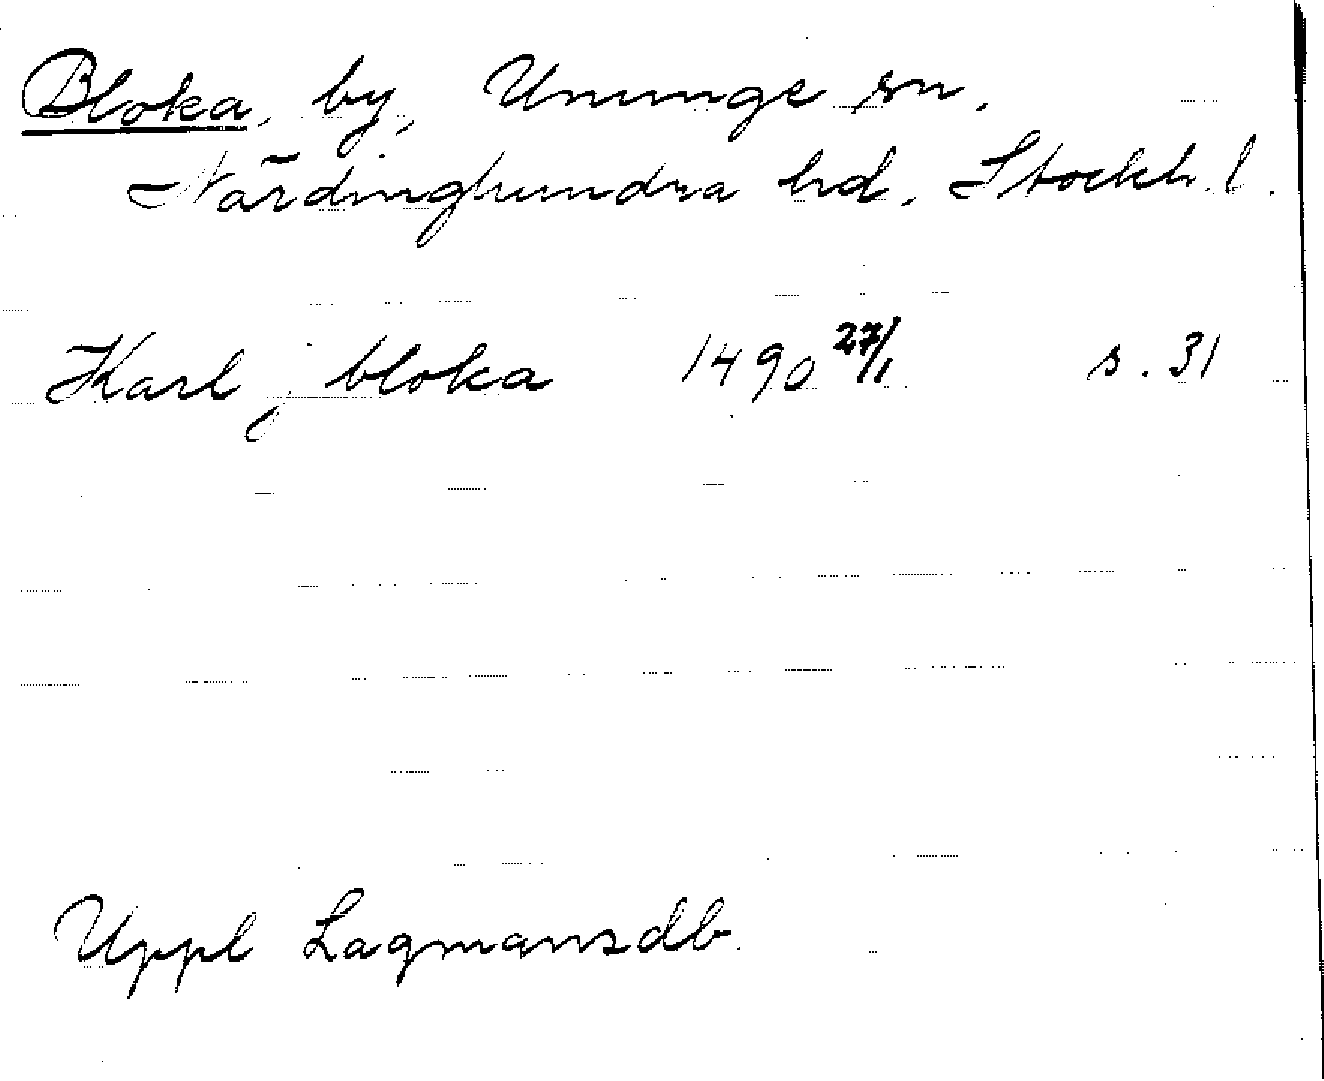 Bloka, by, Ununge sn.
Närdinghundra hd. Stockh. l.
Karl j bloka 1490 27/1 s. 31
Uppl Lagmansdb.